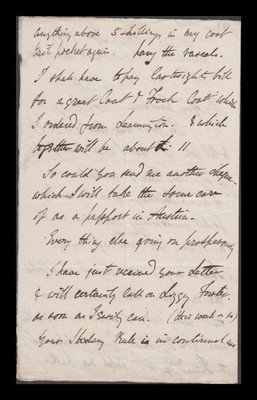 anything above 5 shillings in my coat
tail pocket again. hang the rascals.
I shall have to pay Cartwright's bill
for a great Coat & Frock Coat which
I ordered from Leamington. & which
together will be about £ 11
So could you send me another cheque
which I will take the same care
of as a passport in Austria.
Every thing else going on prosperously
I have just received your letter
& will certainly call on Lizzy Foster
as soon as I easily can. (This week or so)
Your Sunday Rule is in continual use